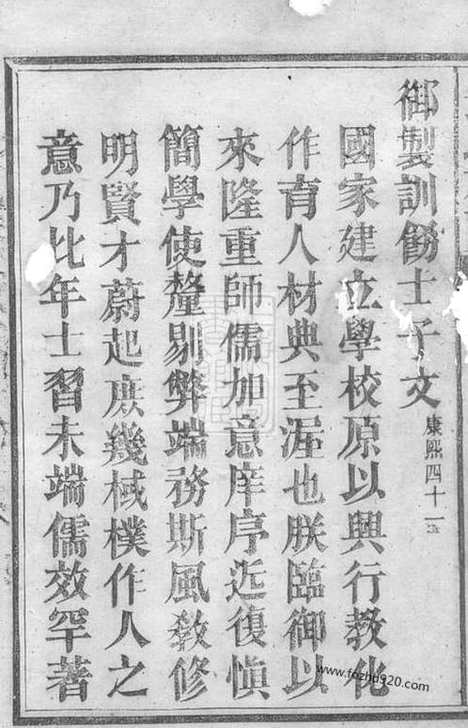 御製訓飭士子文 康熙四十一
國家建立學校原以興行教化
作育人材典至渥也朕臨御以
來隆重師儒加意庠序近復慎
簡學使釐剔弊端務斯風教修
明賢才蔚起庶幾棫樸作人之
意乃比年士習未端儒效罕著
www.fozhd920.com